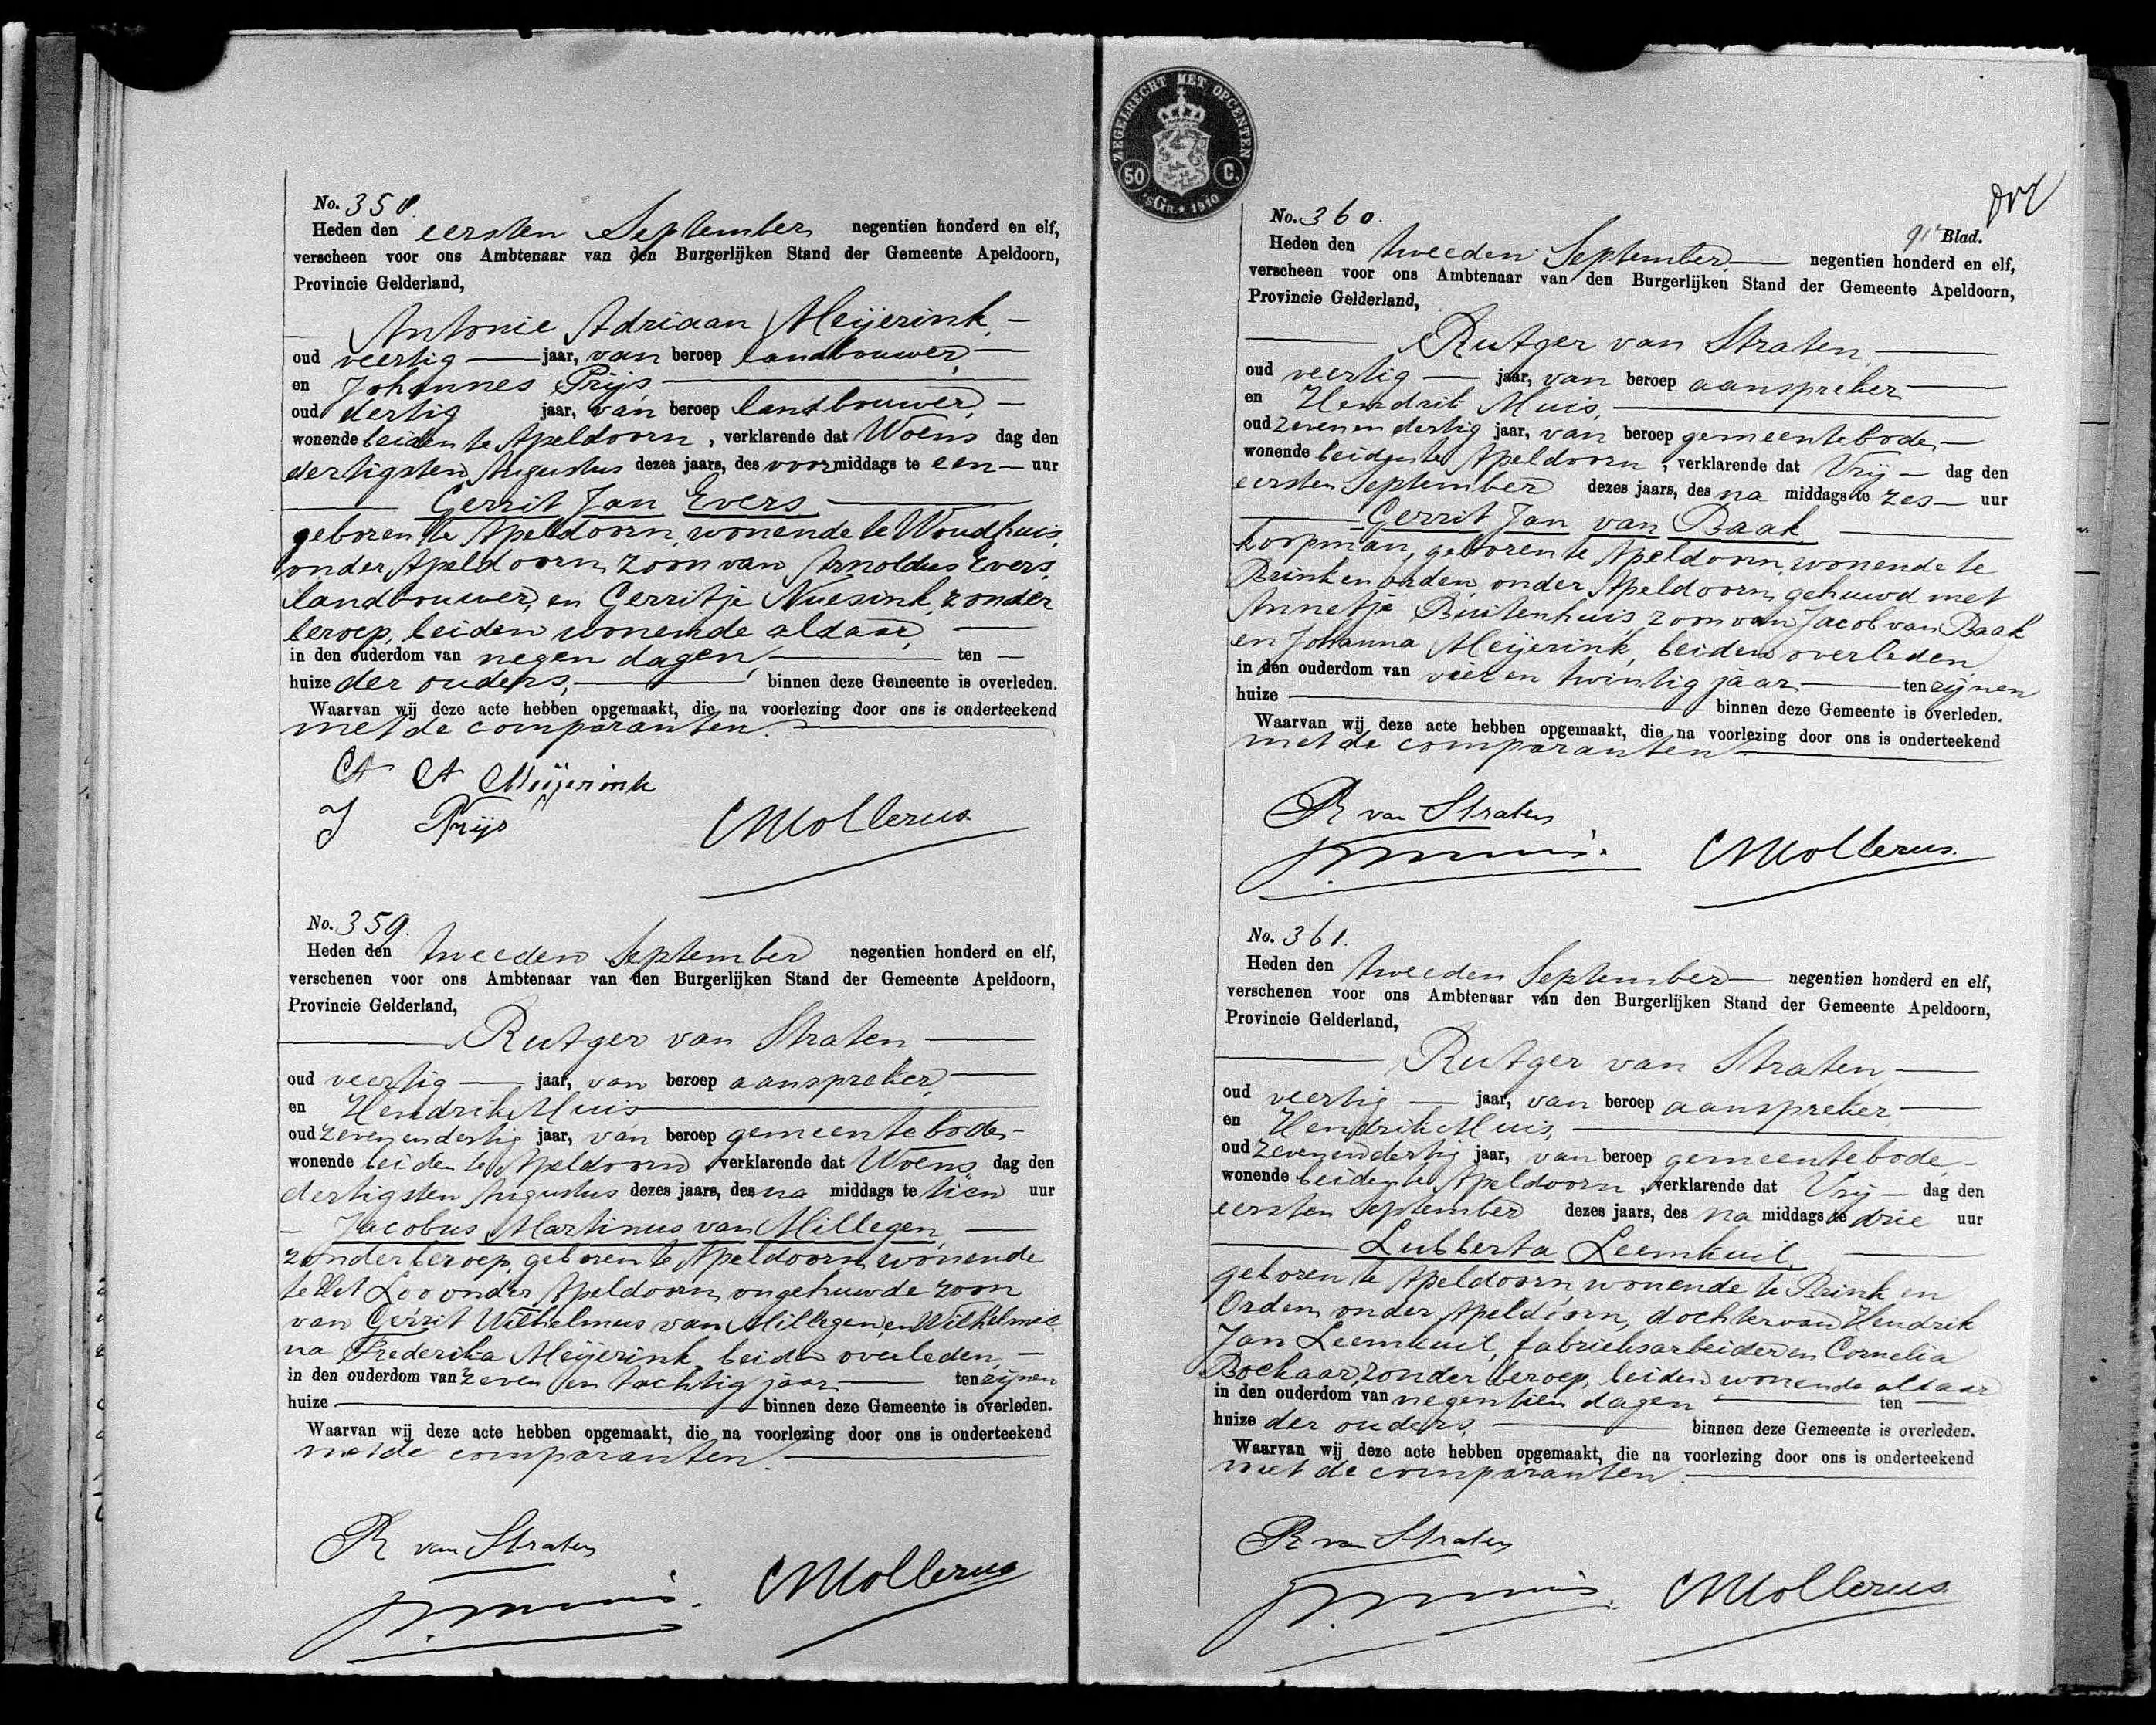 No. 358.
Heden den eersten September negentien honderd en elf,
verscheen voor ons Ambtenaar van den Burgerlijken Stand der Gemeente Apeldoorn,
Provincie Gelderland,
Antonie Adriaan Meijerink,
oud veertig jaar, van beroep landbouwer,
en Johannes Prijs,
oud dertig jaar, van beroep landbouwer,
wonende beiden te Apeldoorn, verklarende dat Woens dag den
dertigsten Augustus dezes jaars, des voormiddags te een uur
Gerrit Jan Evers
geboren te Apeldoorn, wonende te Woudhuis,
onder Apeldoorn, zoon van Arnoldus Evers,
landbouwer, en Gerritje Nuesink, zonder
beroep, beiden wonende aldaar,
in den ouderdom van negen dagen, ten
huize der ouders, binnen deze Gemeente is overleden.
Waarvan wij deze acte hebben opgemaakt, die na voorlezing door ons is onderteekend
met de comparanten.
A A Meijerink
J Prijs
CMollerus
No. 359.
Heden den tweeden September negentien honderd en elf,
verschenen voor ons Ambtenaar van den Burgerlijken Stand der Gemeente Apeldoorn,
Provincie Gelderland,
Rutger van Straten
oud veertig jaar, van beroep aanspreker,
en Hendrik Muis
oud zevenendertig jaar, van beroep gemeentebode,
wonende beiden te Apeldoorn verklarende dat Woens dag den
dertigsten Augustus dezes jaars, des na middags te tien uur
Jacobus Martinus van Millegen,
zonder beroep, geboren te Apeldoorn, wonende
te Het Loo onder Apeldoorn, ongehuwde zoon
van Gerrit Wilhelmus van Millegen, en Wilhelmi-
na Frederika Meijerink, beiden overleden,
in den ouderdom van zeven en tachtig jaar ten zijnen
huize binnen deze Gemeente is overleden.
Waarvan wij deze acte hebben opgemaakt, die na voorlezing door ons is onderteekend
met de comparanten.
R van Straten
H. Muis.
CMollerus
ZEGELRECHT MET OPCENTEN
50 C.
'sGR. 1910
91e Blad.
No. 360.
Heden den tweeden September negentien honderd en elf,
verscheen voor ons Ambtenaar van den Burgerlijken Stand der Gemeente Apeldoorn,
Provincie Gelderland,
Rutger van Straten,
oud veertig jaar, van beroep aanspreker
en Hendrik Muis,
oud zevenendertig jaar, van beroep gemeentebode,
wonende beiden te Apeldoorn, verklarende dat Vrij dag den
eersten September dezes jaars, des na middags te zes uur
Gerrit Jan van Baak,
koopman, geboren te Apeldoorn, wonende te
Brink en orden, onder Apeldoorn, gehuwd met
Annetje Buitenhuis, zoon van Jacob van Baak
en Johanna Meijerink, beiden overleden
in den ouderdom van vier en twintig jaar ten zijnen
huize binnen deze Gemeente is overleden.
Waarvan wij deze acte hebben opgemaakt, die na voorlezing door ons is onderteekend
met de comparanten
R van Straten
H. Muis.
CMollerus.
No. 361.
Heden den tweeden September negentien honderd en elf,
verschenen voor ons Ambtenaar van den Burgerlijken Stand der Gemeente Apeldoorn,
Provincie Gelderland,
Rutger van Straten,
oud veertig jaar, van beroep aanspreker,
en Hendrik Muis,
oud zevenendertig jaar, van beroep gemeentebode,
wonende beiden te Apeldoorn, verklarende dat Vrij dag den
eersten September dezes jaars, des na middags te drie uur
Lubberta Leemkuil,
geboren te Apeldoorn, wonende te Brink en
Orden, onder Apeldoorn, dochter van Hendrik
Jan Leemkuil, fabrieksarbeider en Cornelia
Boekaar, zonder beroep, beiden wonende aldaar
in den ouderdom van negentien dagen ten
huize der ouders, binnen deze Gemeente is overleden.
Waarvan wij deze acte hebben opgemaakt, die na voorlezing door ons is onderteekend
met de comparanten.
R van Straten
H. Muis.
CMollerus